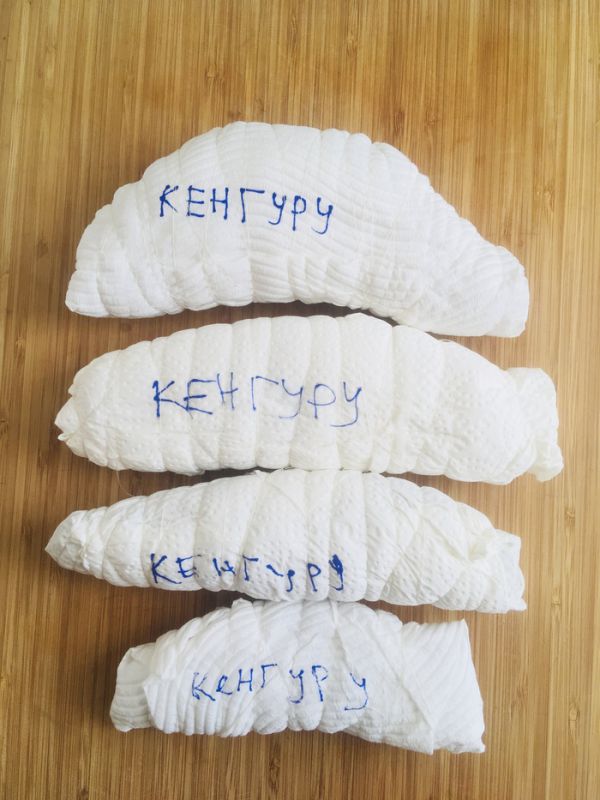 КЕНГУРУ
КЕНГУРУ
КЕНГУРУ
КеНГУРУ